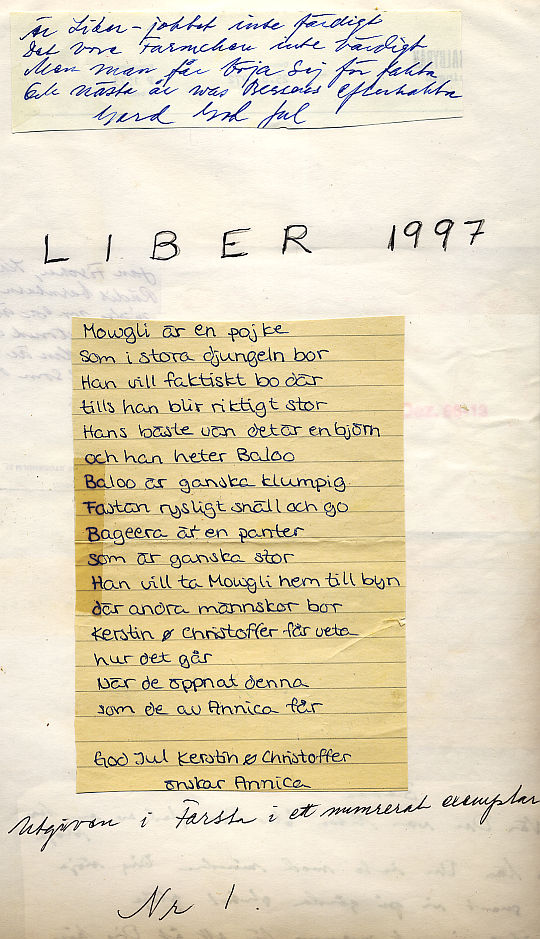 Är Liber-jobbet inte färdigt
Det vore Farmchen inte värdigt
Men man får böja sej för fakta
Och nästa år efterhakta
Gerd God Jul
LIBER 1997
Mowgli är en pojke
som i stora djungeln bor
Han vill faktiskt bo där
tills han blir riktigt stor
Hans bäste vän det är en björn
och han heter Baloo
Baloo är ganska klumpig
Fastän rysligt snäll och go
Bageera är en panter
som är ganska stor
Han vill ta Mowgli hem till byn
där andra männskor bor
Kerstin & Christoffer får veta
hur det går
När de öppnat denna
som de av Annica får
God Jul Kerstin & Christoffer
önskar Annica
Utgiven i Farsta i ett numrerat exemplar
Nr 1.